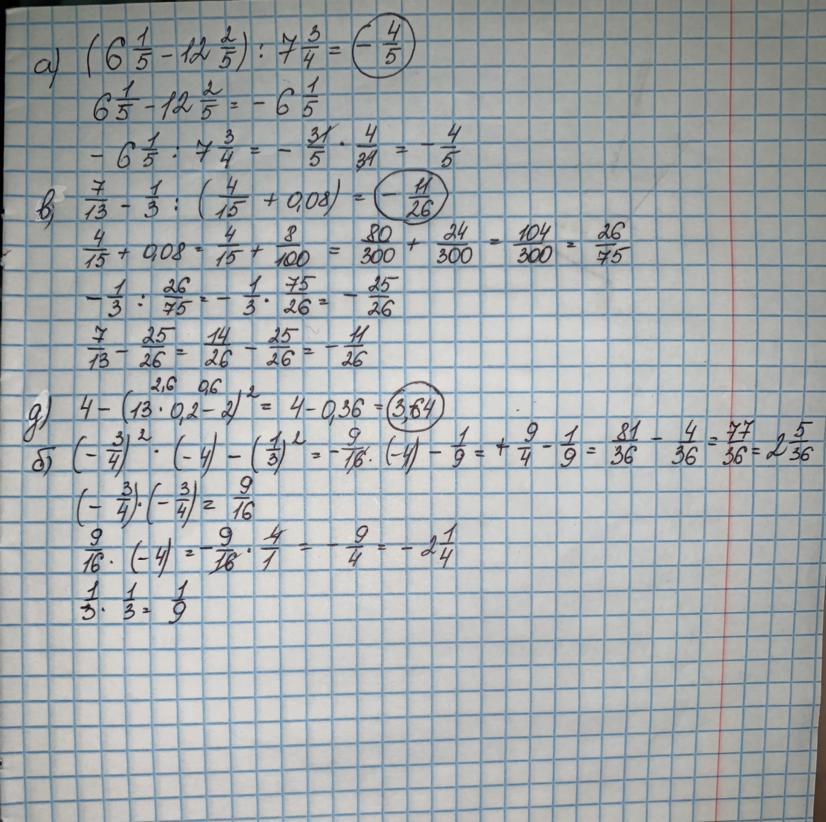 а) (6 1/5 - 12 2/5) : 7 3/4 = - 4/5
6 1/5 - 12 2/5 = - 6 1/5
- 6 1/5 : 7 3/4 = - 31/5 · 4/31 = - 4/5
в) 7/13 - 1/3 : (4/15 + 0,08) = - 11/26
4/15 + 0,08 = 4/15 + 8/100 = 80/300 + 24/300 = 104/300 = 26/75
- 1/3 : 26/75 = - 1/3 · 75/26 = - 25/26
7/13 - 25/26 = 14/26 - 25/26 = - 11/26
2,6 0,6
д) 4 - (13 · 0,2 - 2)² = 4 - 0,36 = 3,64
б) (- 3/4)² · (-4) - (1/3)² = - 9/16 · (-4) - 1/9 = + 9/4 - 1/9 = 81/36 - 4/36 = 77/36 = 2 5/36
(- 3/4) · (- 3/4) = 9/16
9/16 · (-4) = - 9/16 · 4/1 = - 9/4 = - 2 1/4
1/3 · 1/3 = 1/9